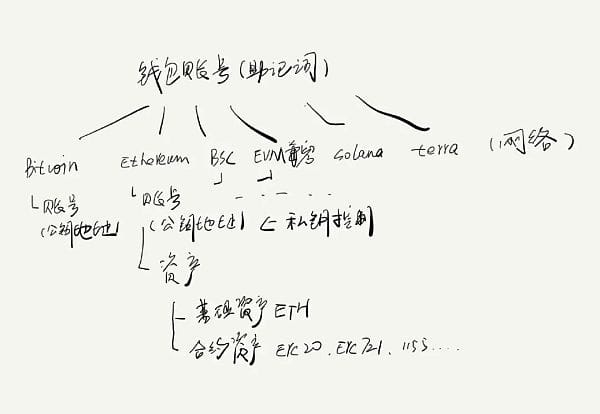 钱包账号(助记词)
Bitcoin Ethereum BSC EVM兼容 solana terra (网络)
账号 账号 - . - . . .
(公钥地址) (公钥地址) ← 私钥控制
资产
基础资产 ETH
合约资产 ERC20. ERC721. 1155....